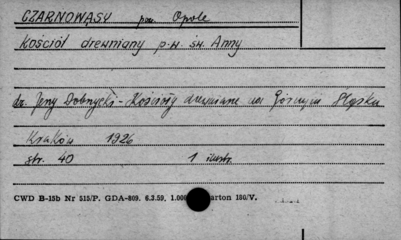 CZARNOWĄSY pow. Opole
Kościół drewniany p.w. św. Anny
dr. Jerzy Dobrzycki - Kościoły drewniane na Górnym Śląsku
Kraków 1926
str. 40 1 ilustr.
CWD B-15b Nr 515/P. GDA-809. 6.3.59. 1.000 karton 180/V.